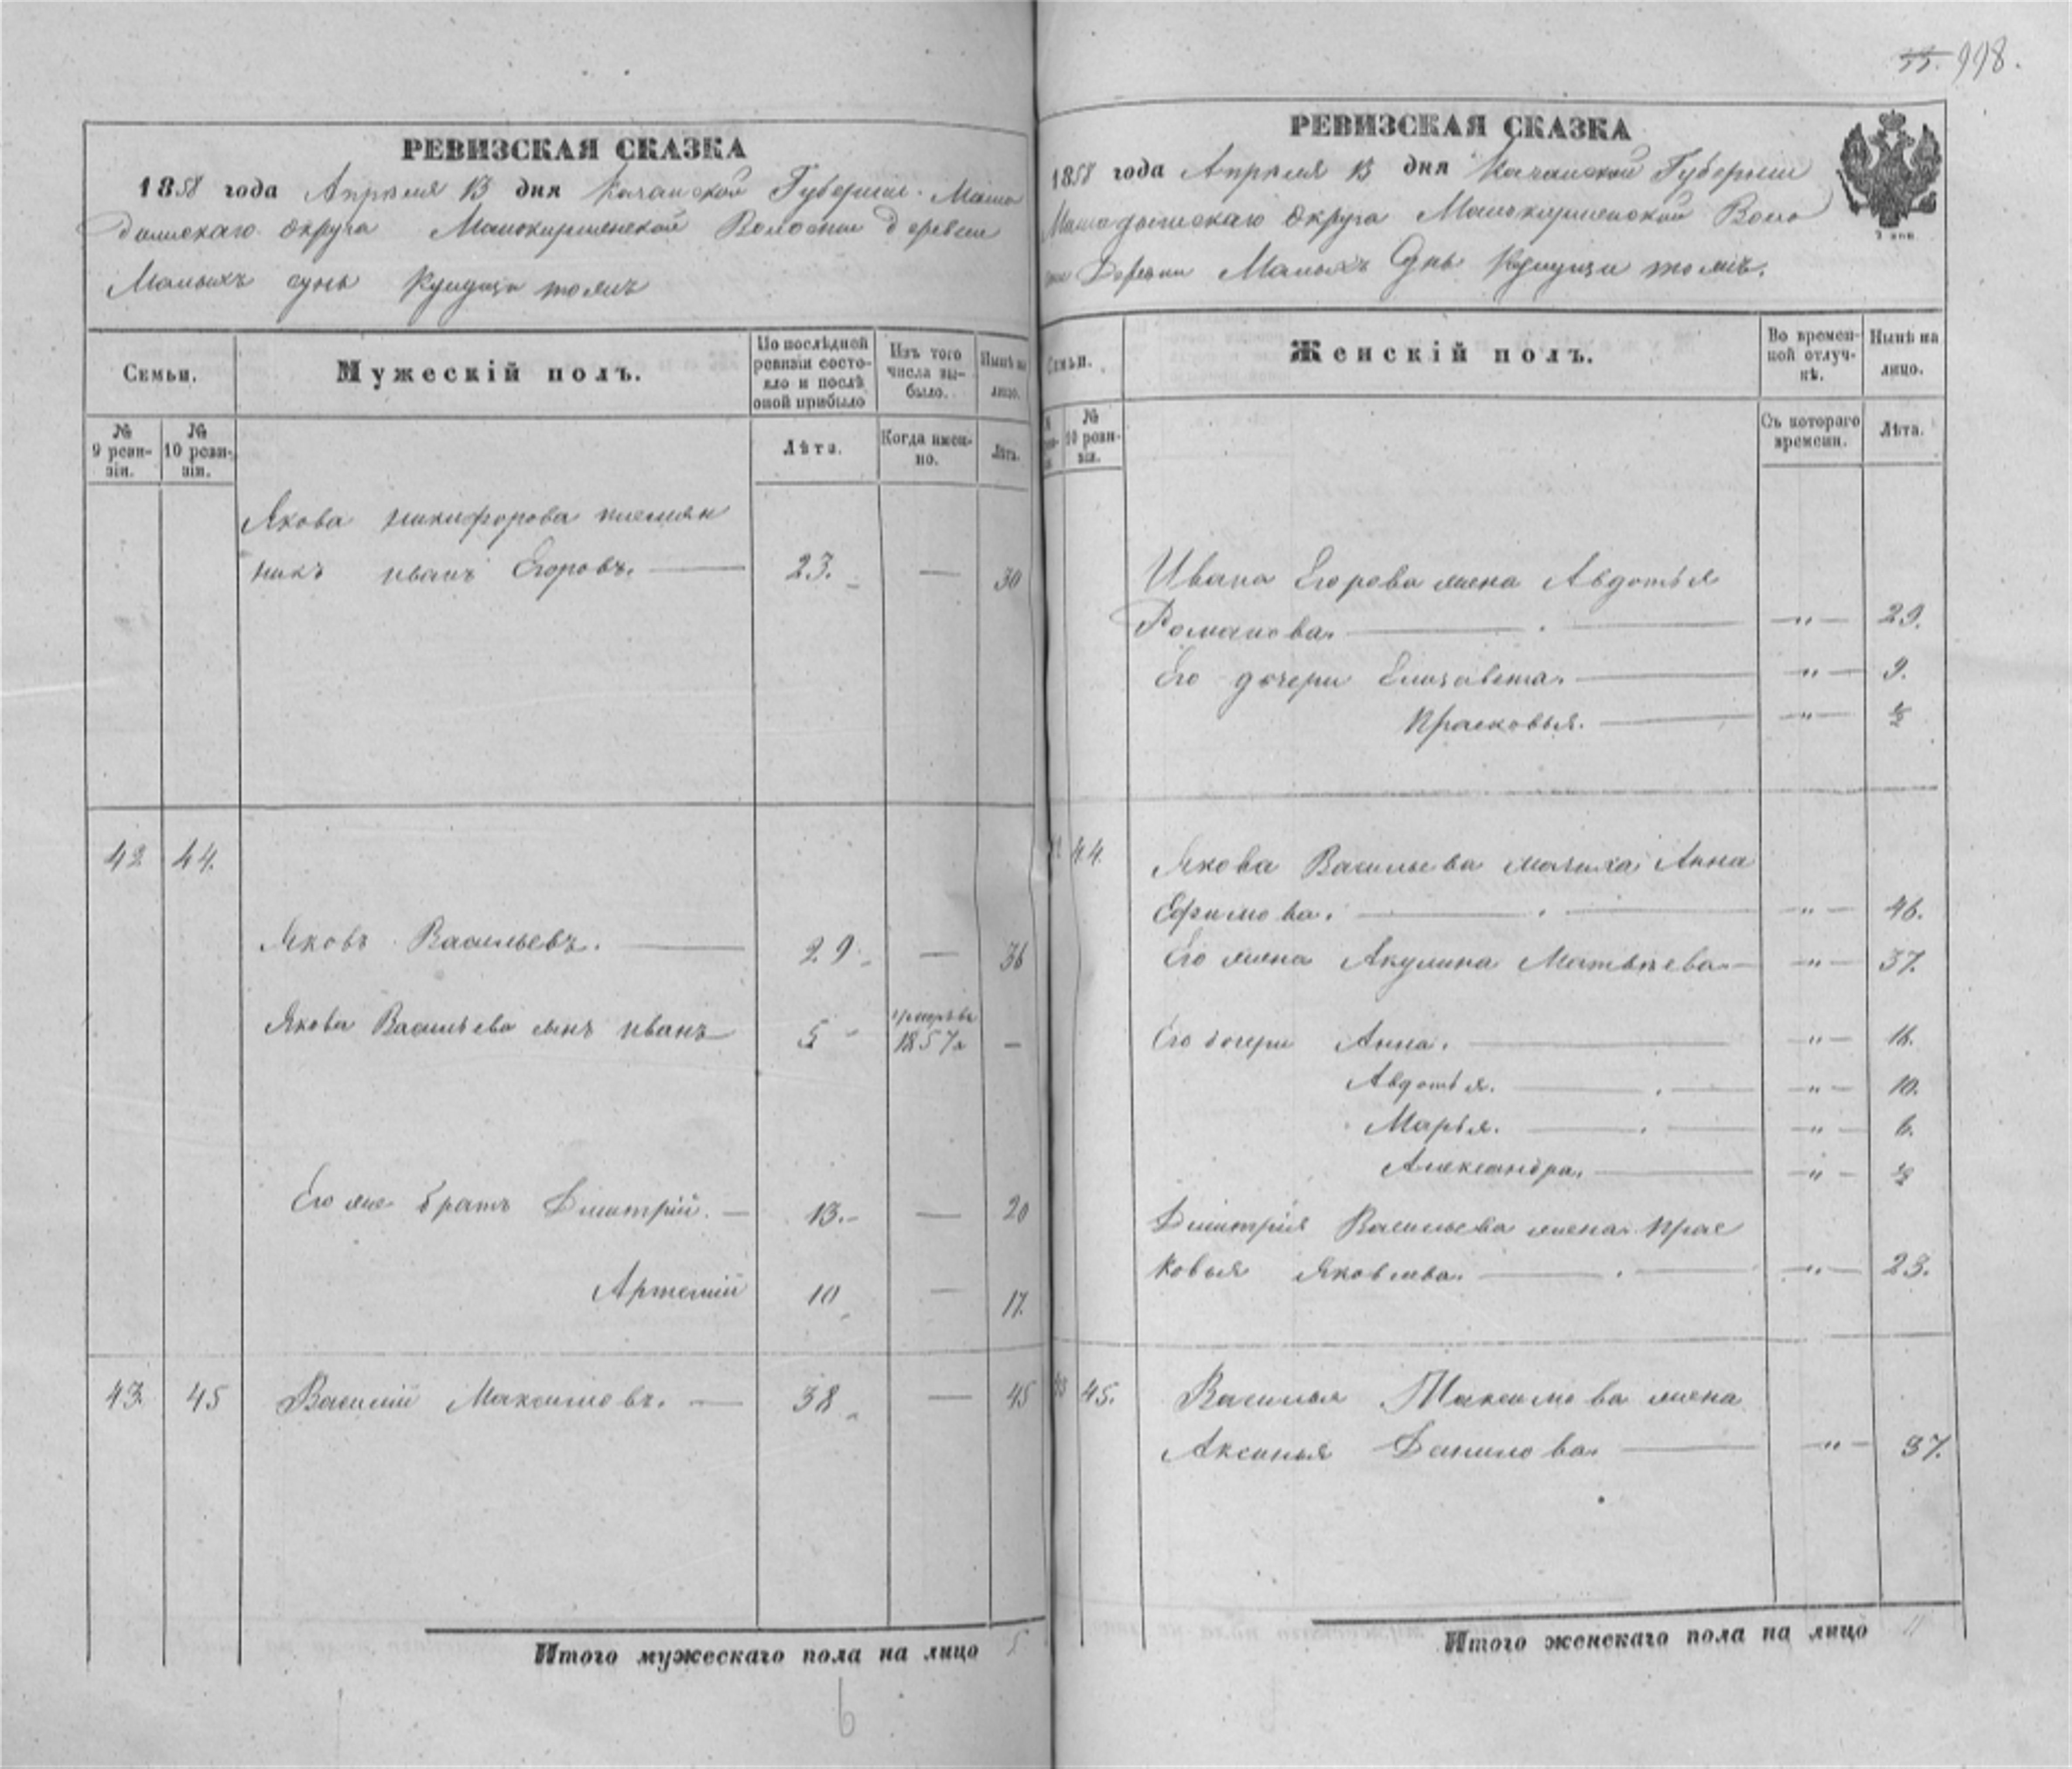 998.
РЕВИЗСКАЯ СКАЗКА
1858 года Апреля 13 дня Казанской Губернии Мама
дышскаго округа Волости деревни
Малыхъ сунь
Семьи.
Мужескій полъ.
По послѣдней ревизіи состояло и послѣ оной прибыло
Изъ того числа выбыло.
Нынѣ на лицо.
№ 9 ревизіи.
№ 10 ревизіи.
Лѣта.
Когда именно.
Лѣта.
Якова Никифорова племян
никъ иванъ Егоровъ. 23. — 30
42 44.
Яковъ Васильевъ. 29 — 36
Якова Васильева сынъ иванъ 5 1857 —
Его же братъ Дмитрій. 13. — 20
Артемій 10 — 17.
43 45 Василій Максимовъ. 38 — 45
Итого мужескаго пола на лицо 5
6
РЕВИЗСКАЯ СКАЗКА
1858 года Апреля 13 дня Казанской Губернии
Мамадышскаго округа Воло
сти Деревни Малыхъ Сунь
Семьи.
Женскій полъ.
Во временной отлучкѣ.
Нынѣ на лицо.
№ 10 ревизіи.
Съ котораго времени.
Лѣта.
Ивана Егорова жена Авдотья
Романова. — „ — 29.
Его дочери Елизавета. — „ — 9.
Прасковья. — „ — ½
44. Якова Васильева мачиха Анна
Ефимова. — „ — 46.
Его жена Акулина Матвѣева — „ — 37.
Его дочери Анна. — „ — 16.
Авдотья. — „ — 10.
Марья. — „ — 6.
Александра. — „ — ½
Дмитрія Васильева жена Прас
ковья Яковлева. — „ — 23.
43 45. Василья Максимова жена
Аксинья Данилова. — „ — 37.
Итого женскаго пола на лицо 11